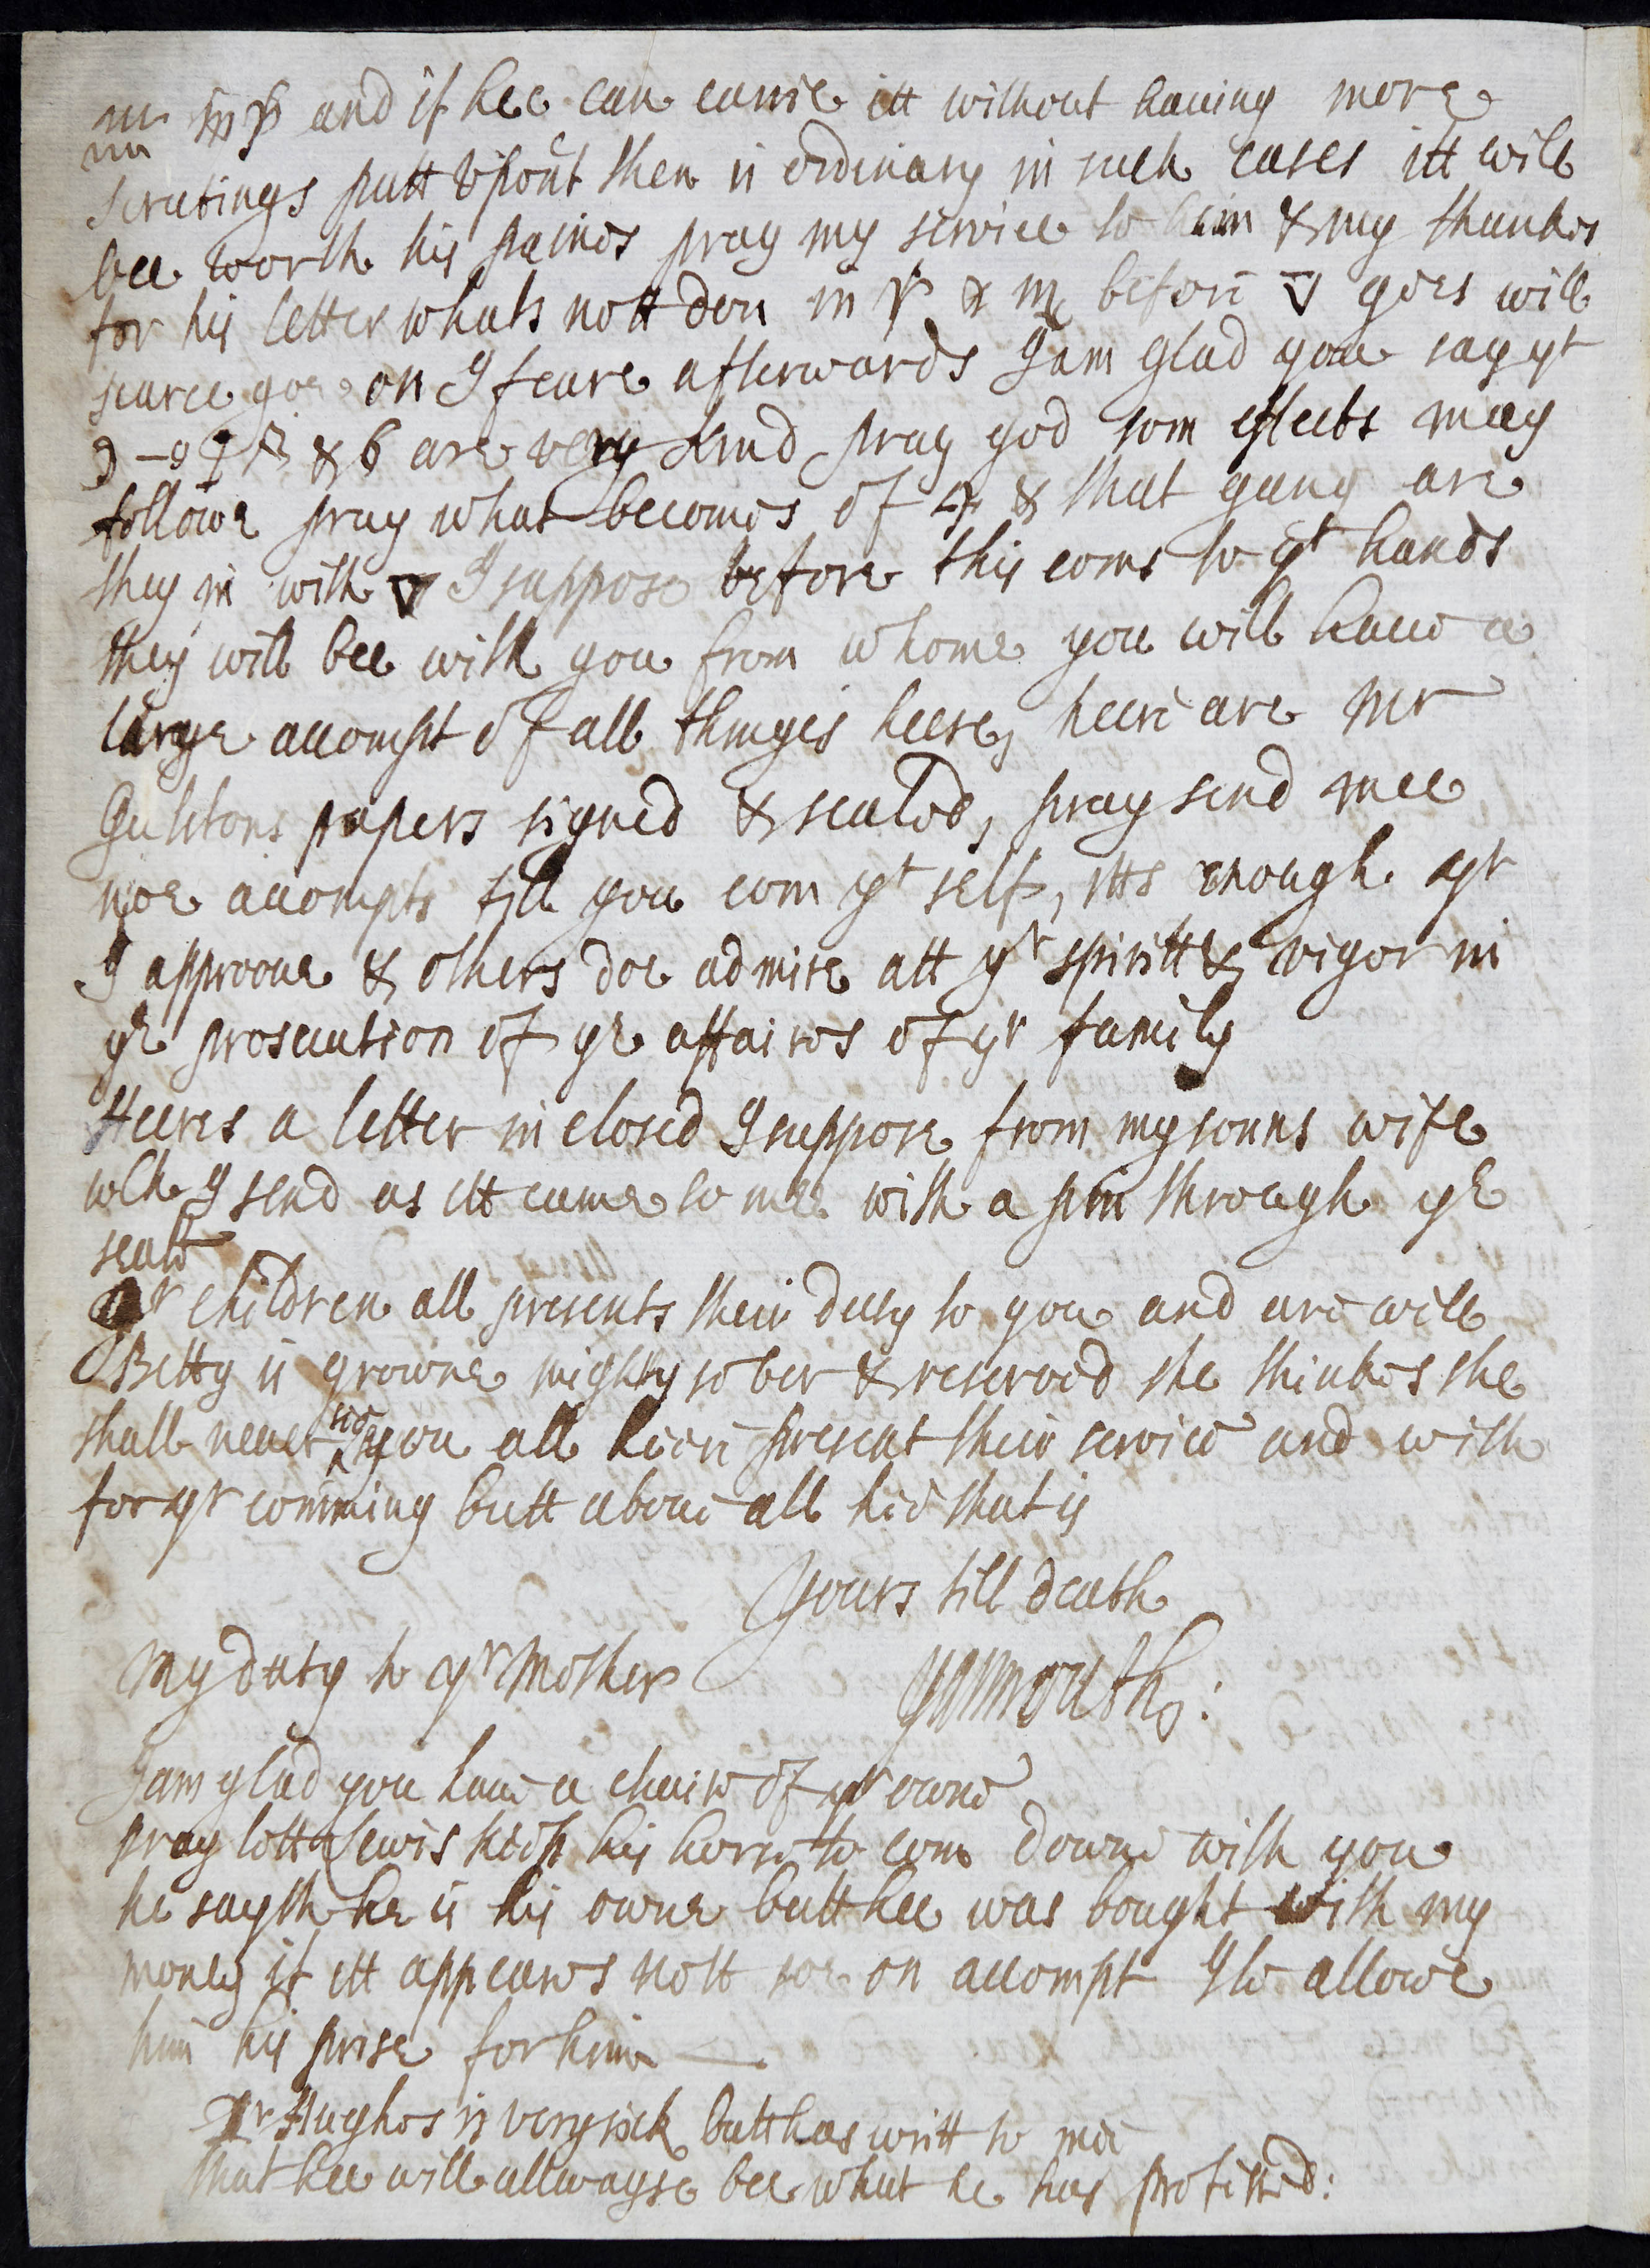 and if hee can carrie itt without haueing more
scrutings putt upont then is ordinary in such cases itt will
bee worth his paines pray my service to him & my thankes
for his letter whats nott don in & before goes will
scarce goe on I feare afterwards I am glad you say yt
& 6 are very kind pray god som effects may
followe pray what becomes of 4 & that gang are
they in with I suppose before this coms to yr hands
they will bee with you from whome you will haue a
large accompt of all thinges heere, heere are Mr
papers signed & sealed, pray send mee
noe accompts till you com yr self, itts enough yt
I approoue & others doe admire att yr spiritt & vigor in
ye prosecution of ye affaires of yr family
Heeres a letter inclosed I suppose from my sonns wife
wch I send as itt came to mee with a pin through ye
seale
yr children all presents their duty to you and are well
Betty is growne mighty sober & reserved she thinkes she
shall neuer see you all heere present their service and wish
for yr comming butt aboue all hee that is
Yours till death
My duty to yr Mother Yarmouth:
I am glad you haue a chaire of yr owne
pray lett Lewis keep his horse to com downe with you
he sayth he is his owne butt hee was bought with my
money if itt appeares nott soe on accompt Ile allowe
him his prise for him
Dr Hughes is very sick butt has writt to mee
that hee will allwayse bee what he has profissed: